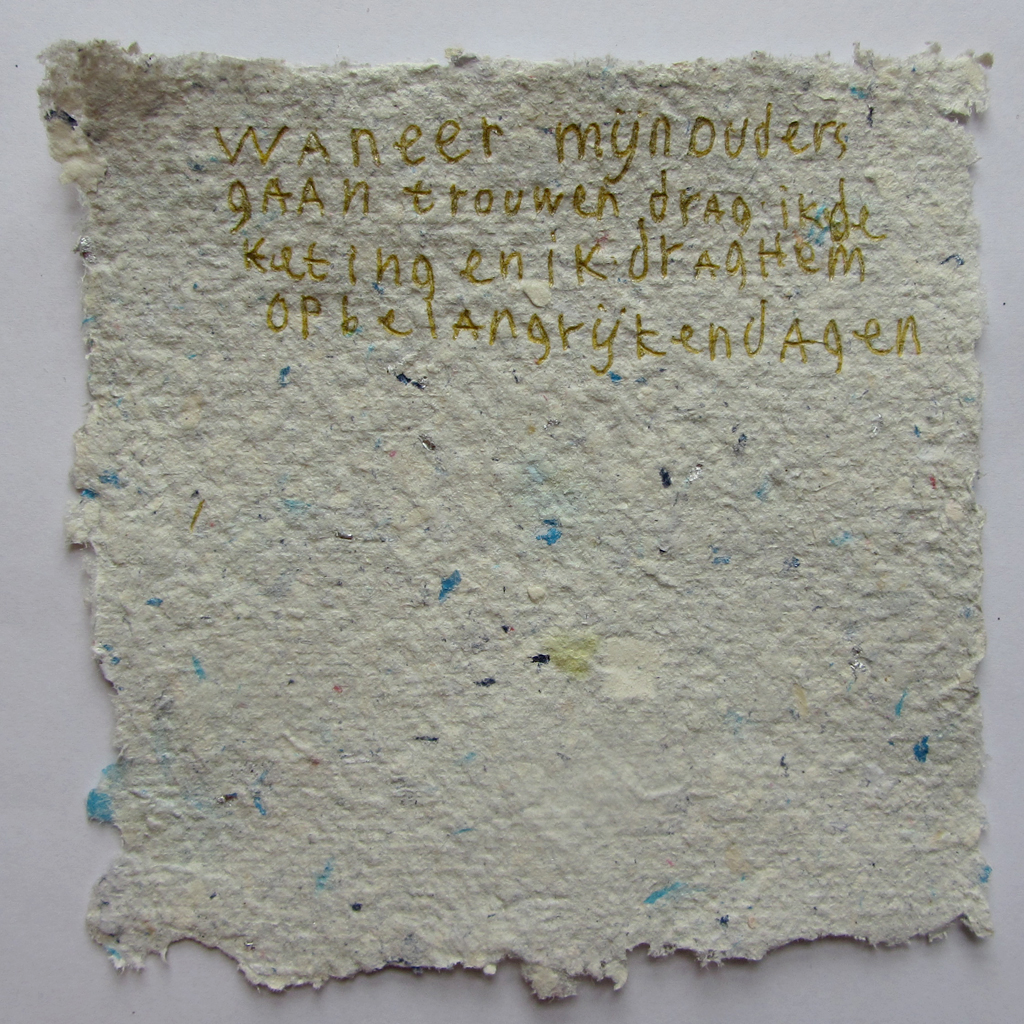 WAneer mijn ouders
gAAn trouwen drAg ik de
keting en ik drAg Hem
op belAngrijken dAgen